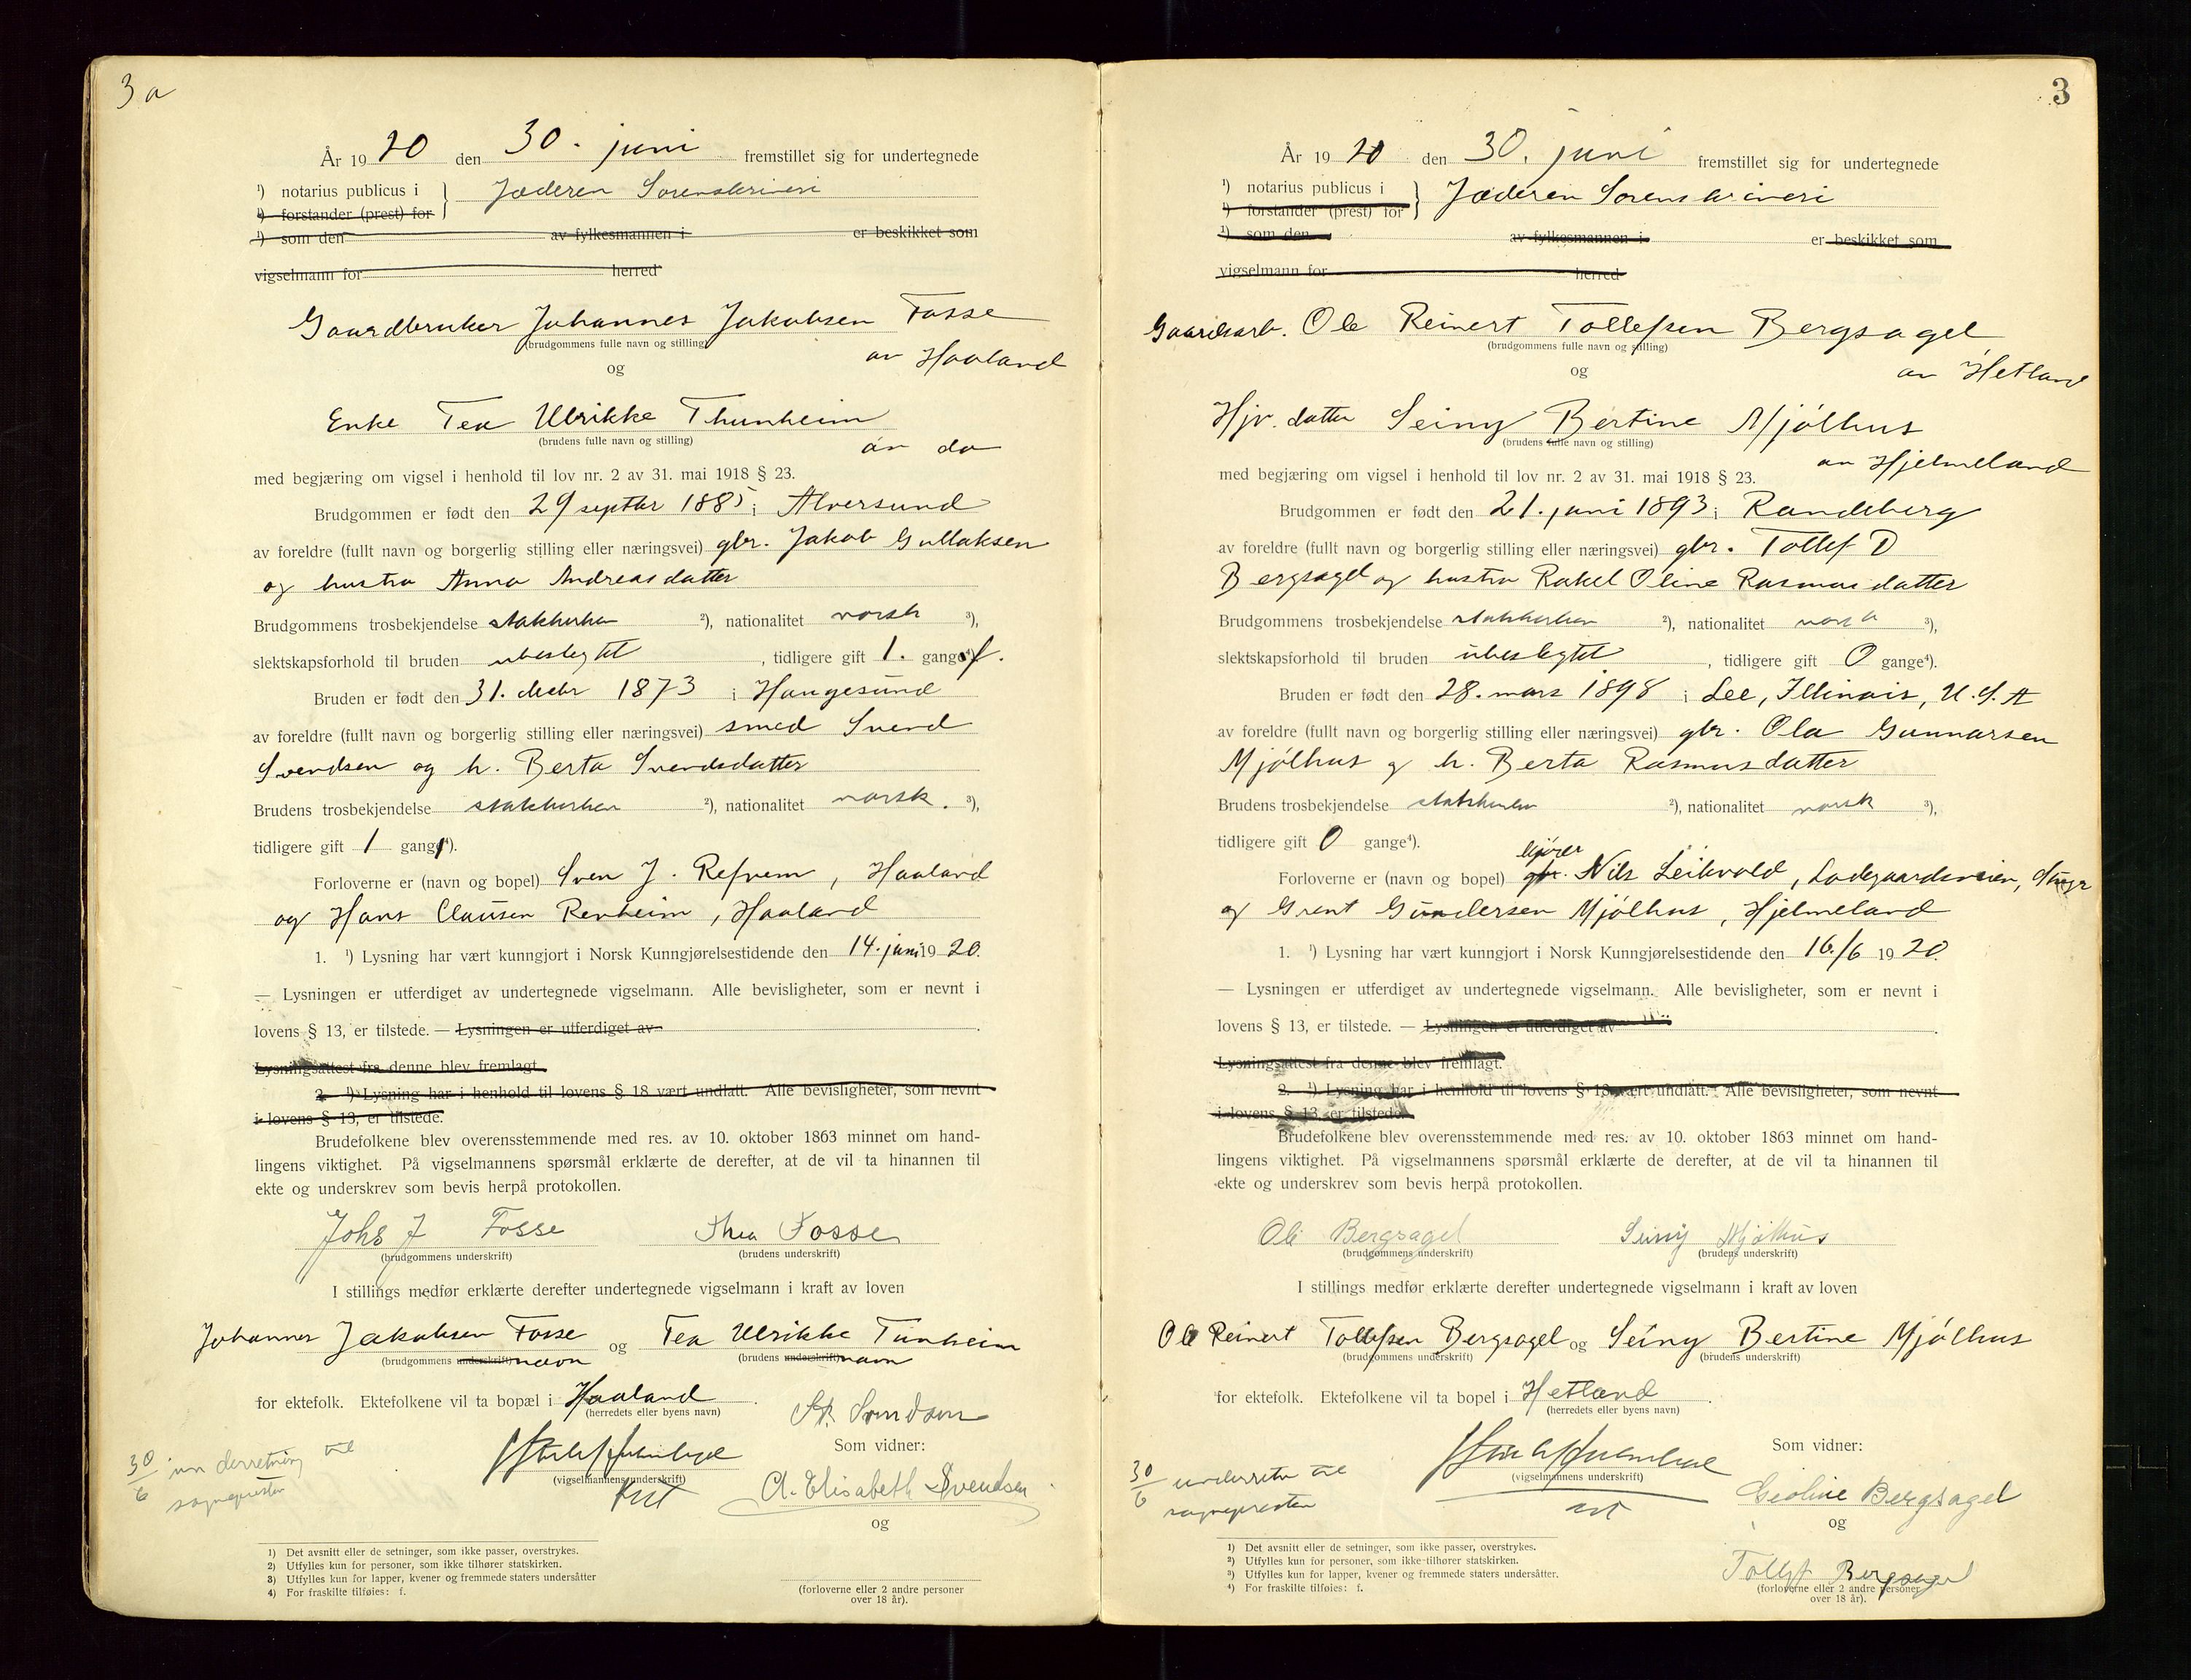 3a
År 19 20 den 30. juni fremstillet sig for undertegnede
¹) notarius publicus i } Jæderen Sorenskriveri
¹) forstander (prest) for
¹) som den av fylkesmannen i er beskikket som
vigselmann for herred
Gaardbruker Johannes Jakobsen Fosse
(brudgommens fulle navn og stilling)
av Haaland
og
Enke Tea Ulrikke Thunheim
(brudens fulle navn og stilling)
av do
med begjæring om vigsel i henhold til lov nr. 2 av 31. mai 1918 § 23.
Brudgommen er født den 29 septbr 1885 i Alversund
av foreldre (fullt navn og borgerlig stilling eller næringsvei) gbr. Jakob Gullaksen
og hustru Anna Andreasdatter
Brudgommens trosbekjendelse statskirken ²), nationalitet norsk ³),
slektskapsforhold til bruden ubeslegtet, tidligere gift 1. gang⁴) f.
Bruden er født den 31. decbr 1873 i Haugesund
av foreldre (fullt navn og borgerlig stilling eller næringsvei) smed Svend
Svendsen og h. Berta Svendsdatter
Brudens trosbekjendelse statskirken ²), nationalitet norsk. ³),
tidligere gift 1 gang⁴).
Forloverne er (navn og bopel) Sven J. Refvem, Haaland
og Hans Clausen Renheim, Haaland
1. ¹) Lysning har vært kunngjort i Norsk Kunngjørelsestidende den 14. juni 19 20.
— Lysningen er utferdiget av undertegnede vigselmann. Alle bevisligheter, som er nevnt i
lovens § 13, er tilstede. — Lysningen er utferdiget av
Lysningsattest fra denne blev fremlagt.
2. ¹) Lysning har i henhold til lovens § 18 vært undlatt. Alle bevisligheter, som nevnt
i lovens § 13, er tilstede.
Brudefolkene blev overensstemmende med res. av 10. oktober 1863 minnet om hand-
lingens viktighet. På vigselmannens spørsmål erklærte de derefter, at de vil ta hinannen til
ekte og underskrev som bevis herpå protokollen.
Johs J Fosse Thea Fosse
(brudgommens underskrift) (brudens underskrift)
I stillings medfør erklærte derefter undertegnede vigselmann i kraft av loven
Johannes Jakobsen Fosse og Tea Ulrikke Tunheim
(brudgommens underskrift) navn (brudens underskrift) navn
for ektefolk. Ektefolkene vil ta bopæl i Haaland.
(herredets eller byens navn)
Svendsen
Som vidner:
(vigselmannens underskrift)
A. Elisabeth Svendsen
30/6 underretning til
sognepresten
og
1) Det avsnitt eller de setninger, som ikke passer, overstrykes.
2) Utfylles kun for personer, som ikke tilhører statskirken.
3) Utfylles kun for lapper, kvener og fremmede staters undersåtter
4) For fraskilte tilføies: f.
(forloverne eller 2 andre personer
over 18 år).
3
År 19 20 den 30. juni fremstillet sig for undertegnede
¹) notarius publicus i } Jæderen Sorenskriveri
¹) forstander (prest) for
¹) som den av fylkesmannen i er beskikket som
vigselmann for herred
Gaardsarb. Ole Reinert Tollefsen Bergsagel
(brudgommens fulle navn og stilling)
av Hetland
og
Hjv. datter Seiny Bertine Mjølhus
(brudens fulle navn og stilling)
av Hjelmeland
med begjæring om vigsel i henhold til lov nr. 2 av 31. mai 1918 § 23.
Brudgommen er født den 21. juni 1893 i Randeberg
av foreldre (fullt navn og borgerlig stilling eller næringsvei) gbr. Tollef D
Bergsagel og hustru Rakel Oline Rasmusdatter
Brudgommens trosbekjendelse statskirken ²), nationalitet norsk ³),
slektskapsforhold til bruden ubeslegtet, tidligere gift 0 gange⁴).
Bruden er født den 28. mars 1898 i Lee, Illinois, U.S.A
av foreldre (fullt navn og borgerlig stilling eller næringsvei) gbr. Ola Gunnarsen
Mjølhus og h. Berta Rasmusdatter
Brudens trosbekjendelse statskirken ²), nationalitet norsk ³),
tidligere gift 0 gange⁴).
Forloverne er (navn og bopel) kjører Nils Leikvold, Ladegaardsveien, Stvgr
og Grent Gundersen Mjølhus, Hjelmeland
1. ¹) Lysning har vært kunngjort i Norsk Kunngjørelsestidende den 16./6 19 20.
— Lysningen er utferdiget av undertegnede vigselmann. Alle bevisligheter, som er nevnt i
lovens § 13, er tilstede. — Lysningen er utferdiget av
Lysningsattest fra denne blev fremlagt.
2. ¹) Lysning har i henhold til lovens § 18 vært undlatt. Alle bevisligheter, som nevnt
i lovens § 13, er tilstede.
Brudefolkene blev overensstemmende med res. av 10. oktober 1863 minnet om hand-
lingens viktighet. På vigselmannens spørsmål erklærte de derefter, at de vil ta hinannen til
ekte og underskrev som bevis herpå protokollen.
Ole Bergsagel Seiny Mjølhus
(brudgommens underskrift) (brudens underskrift)
I stillings medfør erklærte derefter undertegnede vigselmann i kraft av loven
Ole Reinert Tollefsen Bergsagel og Seiny Bertine Mjølhus
(brudgommens underskrift) (brudens underskrift)
for ektefolk. Ektefolkene vil ta bopel i Hetland.
(herredets eller byens navn)
Som vidner:
(vigselmannens underskrift)
Geoline Bergsagel
30/6 underrettn til
sognepresten
og
Tollef Bergsagel
1) Det avsnitt eller de setninger, som ikke passer, overstrykes.
²) Utfylles kun for personer, som ikke tilhører statskirken.
³) Utfylles kun for lapper, kvener og fremmede staters undersåtter.
⁴) For fraskilte tilføies: f.
(forloverne eller 2 andre personer
over 18 år).